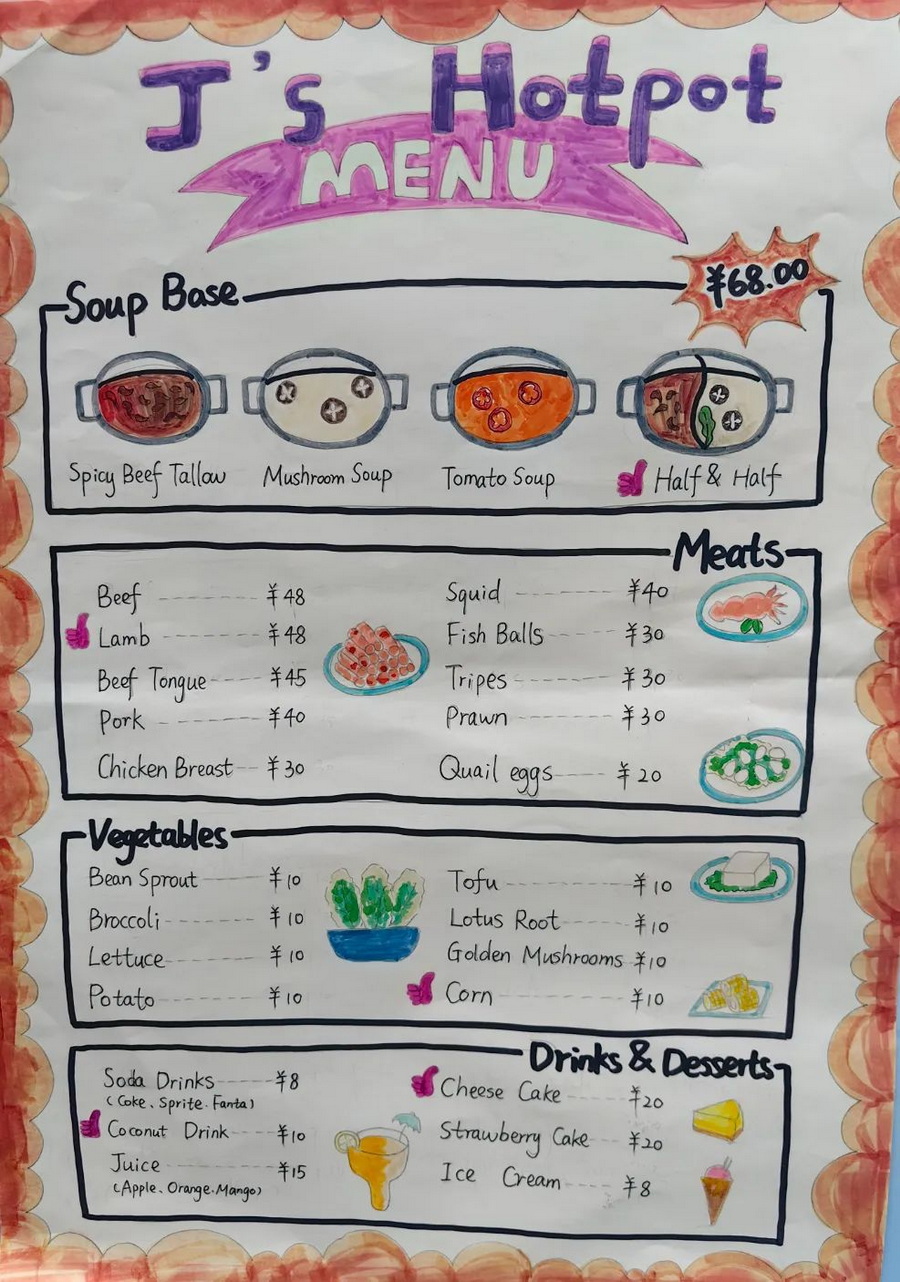 J's Hotpot
MENU
Soup Base
¥68.00
Spicy Beef Tallow
Mushroom Soup
Tomato Soup
Half & Half
Meats
Beef ¥48
Lamb ¥48
Beef Tongue ¥45
Pork ¥40
Chicken Breast ¥30
Squid ¥40
Fish Balls ¥30
Tripes ¥30
Prawn ¥30
Quail eggs ¥20
Vegetables
Bean Sprout ¥10
Broccoli ¥10
Lettuce ¥10
Potato ¥10
Tofu ¥10
Lotus Root ¥10
Golden Mushrooms ¥10
Corn ¥10
Drinks & Desserts
Soda Drinks ¥8
(Coke、Sprite.Fanta)
Coconut Drink ¥10
Juice ¥15
(Apple、Orange.Mango)
Cheese Cake ¥20
Strawberry Cake ¥20
Ice Cream ¥8